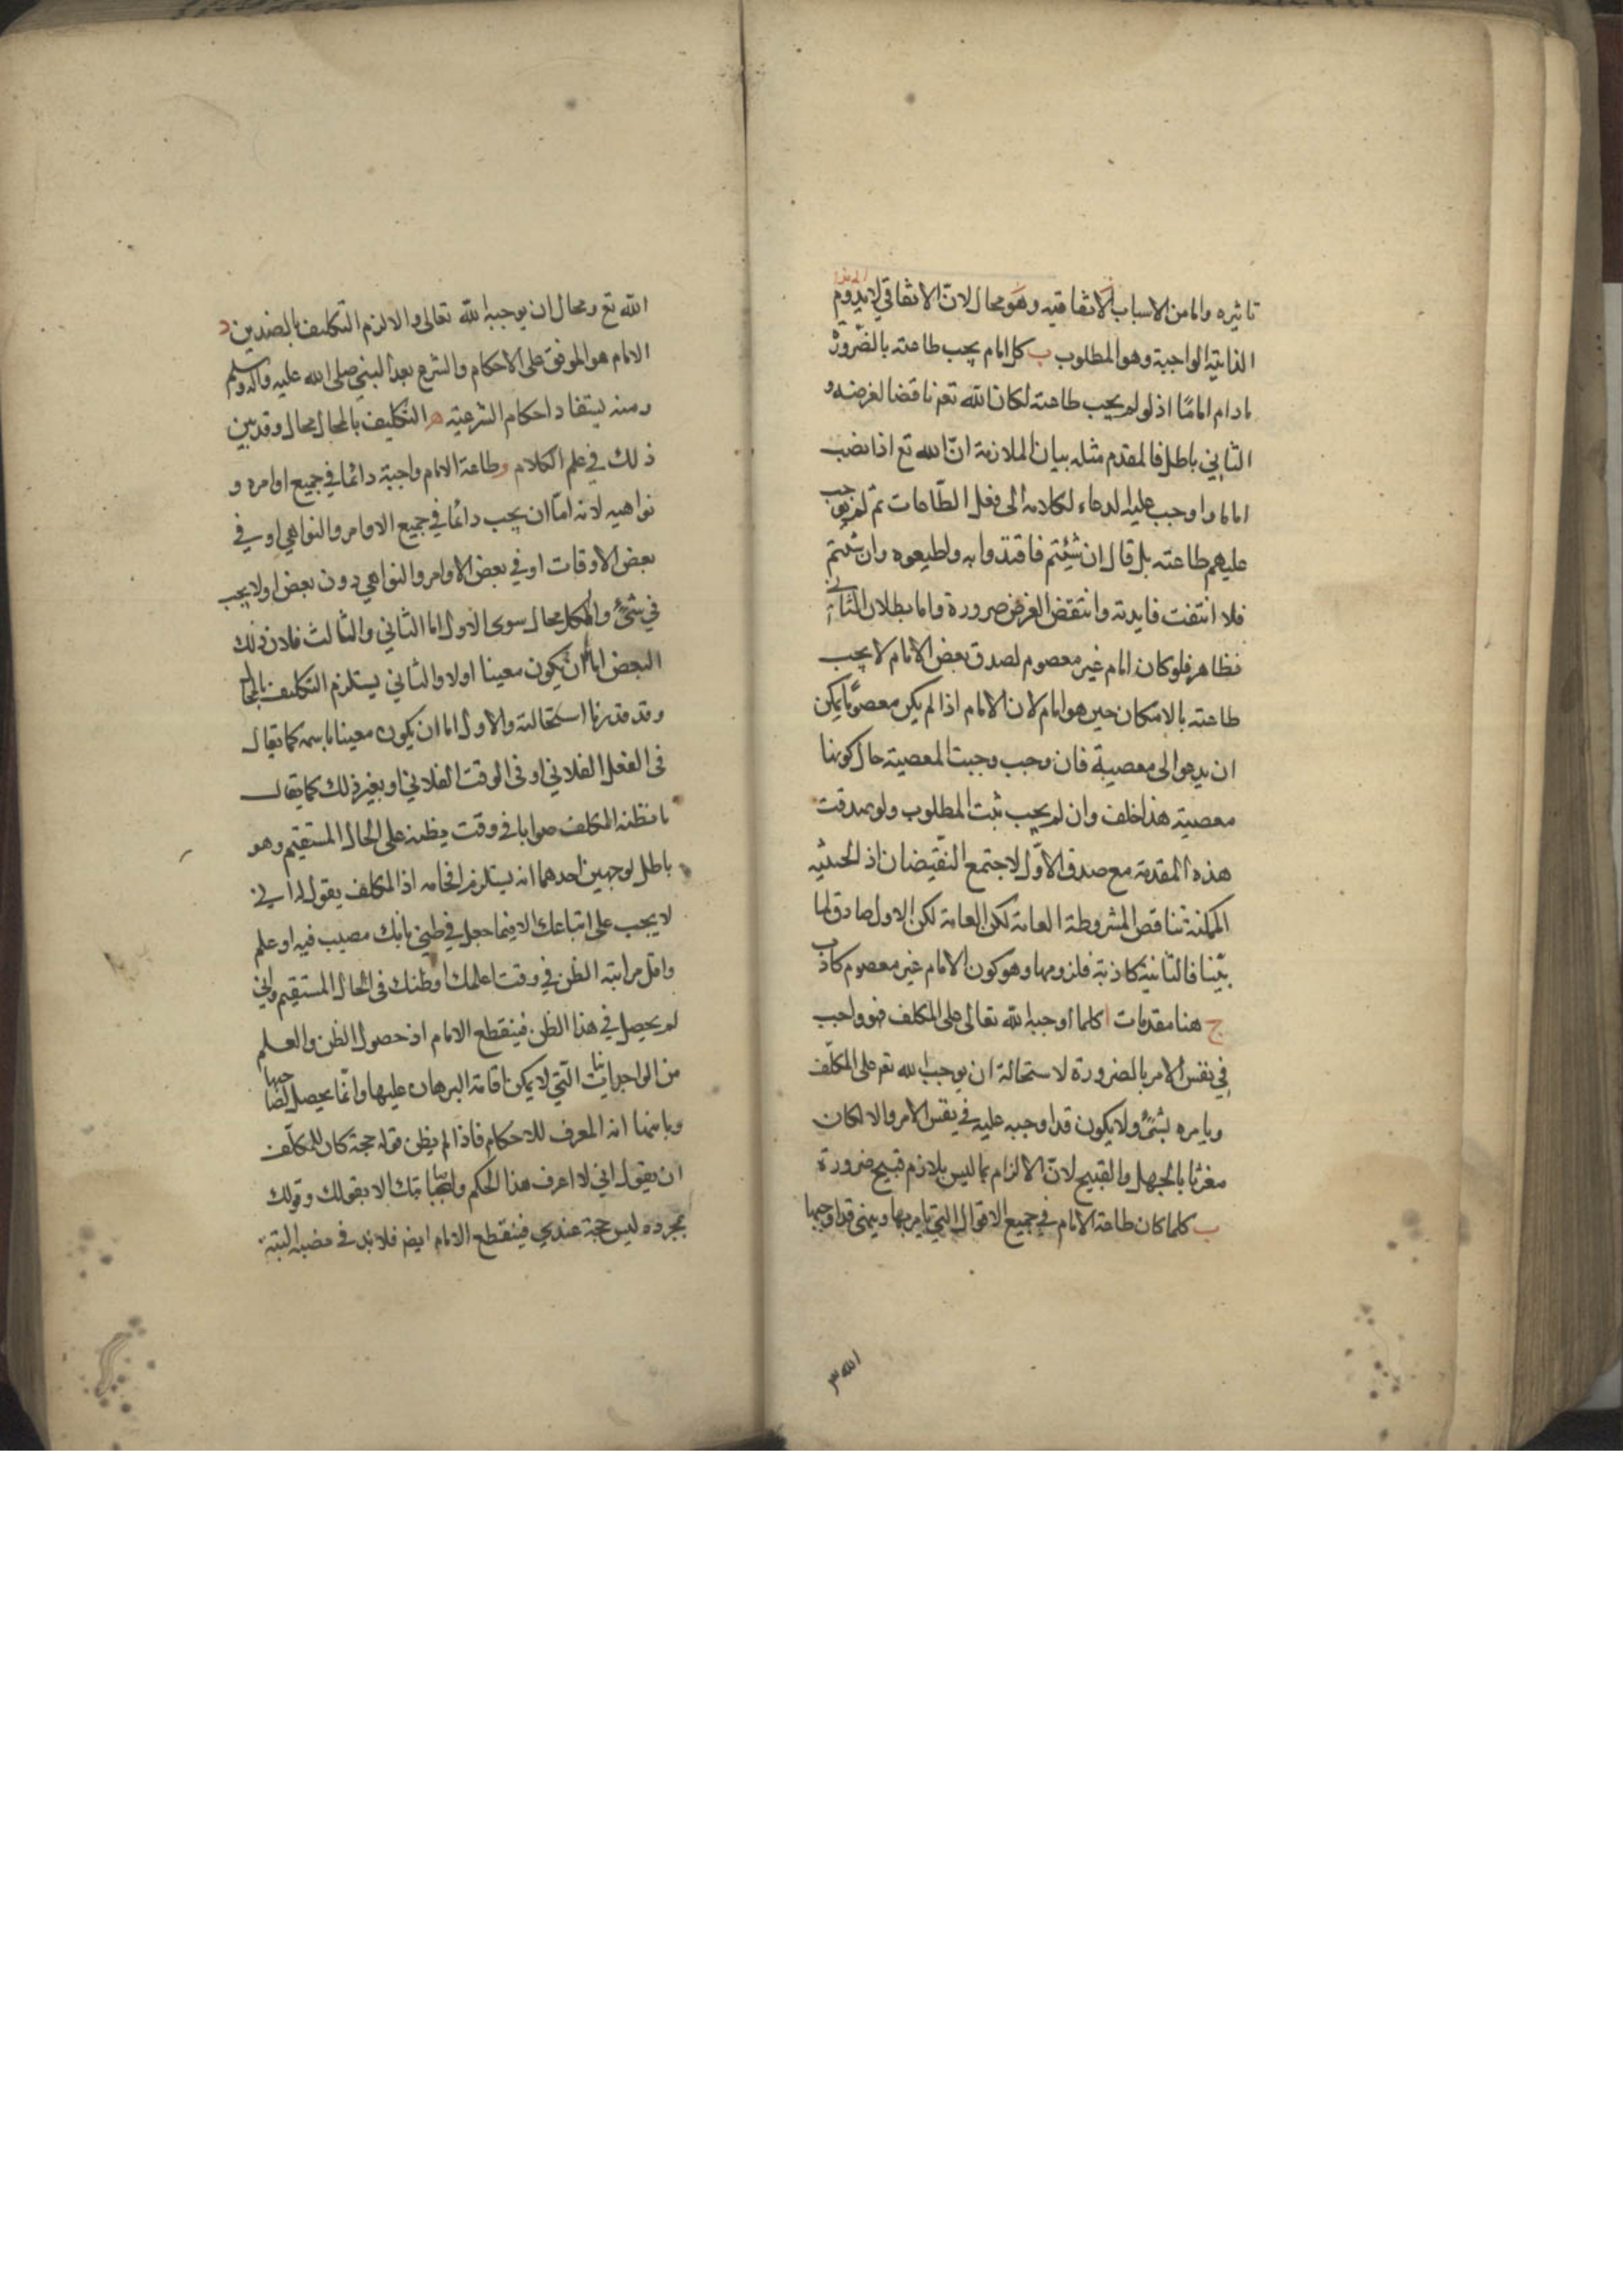 تاثيره واما من الاسباب الاتفاقيه وهو محال لان الاتفاقي لا يدوم
الذاتية الواجبة وهو المطلوب ب كل امام يجب طاعته بالضرورة
ما دام امامًا اذ لو لم يجب طاعته لكان الله تع مناقضا لغرضه و
الثاني باطل فالمقدم مثله بيان الملازمة انّ الله تع اذا نصب
اماما واوجب عليه الدعاء لكلامه الى فعل الطاعات ثم لم يوجب
عليهم طاعته بل قال ان شئتم فاقتدوا به واطيعوه وان شئتم
فلا انتفت فايدته وانتقض الغرض ضرورة واما بطلان الثاني
فظاهر فلو كان امام غير معصوم لصدق بعض الامام لا يجب
طاعته بالامكان حين هو امام لان الامام اذا لم يكن معصومًا يمكن
ان يدعو الى معصية فان وجب وجبت المعصية حال كونها
معصية هذا خلف وان لم يجب ثبت المطلوب ولو صدقت
هذه المقدمة مع صدق الاوّل لاجتمع النقيضان اذ الحينيه
الممكنة تناقض المشروطة العامة لكن العامة لكن الاول صادق لما
بيّنا فالثانية كاذبة فلزومها وهو كون الامام غير معصوم كاذب
ج هنا مقدمات ا كلما اوجبه الله تعالى على المكلف فهو واجب
في نفس الامر بالضرورة لاستحالة ان يوجب الله تع على المكلّف
ويامره بشئ ولا يكون قد اوجبه عليه في نفس الامر والا لكان
مغريا بالجهل والقبيح لانّ الالزام بما ليس بلازم قبيح ضرورة
ب كلما كان طاعة الامام في جميع الاقوال التي يامر بها وينهى قد اوجبها
الله
الله تع ومحال ان يوجبه الله تعالى والا لزم التكليف بالضدين د
الامام هو الموفق على الاحكام والشرع بعد النبي صلى الله عليه واله وسلم
ومنه يستفاد احكام الشرعية ه التكليف بالمحال محال وقد بين
ذلك في علم الكلام و طاعة الامام واجبة دائما في جميع اوامره و
نواهيه لانه امّا ان يجب دائما في جميع الاوامر والنواهي او في
بعض الاوقات او في بعض الاوامر والنواهي دون بعض او لا يجب
في شئ والكل محال سوى الاول اما الثاني والثالث فلان ذلك
البعض اما ان يكون معينا اولا والثاني يستلزم التكليف بالمحال
وقد قدرنا استحالته والاول اما ان يكون معينا باسمه كما يقال
في الفعل الفلاني او في الوقت الفلاني او بغير ذلك كما يقال
ما تظنه المكلف صوابا في وقت يظنه على الحال المستقيم وهو
باطل لوجهين احدهما انه يستلزم افحامه اذ المكلف يقول له اني
لا يجب على اتباعك الا فيما حصل في ظني بانك مصيب فيه او علم
واقل مراتبه الظن في وقت اعلمك او ظنك في الحال المستقيم واني
لم يحصل في هذا الظن فينقطع الامام اذ حصول الظن والعلم
من الوجدانيات التي لا يمكن اقامة البرهان عليها وانّما يحصل لصاحبها
وثانيهما انه المعرف للاحكام فاذا لم يظن قوله حجة كان للمكلّف
ان يقول اني لا اعرف هذا الحكم واتباتك الا بقولك وقولك
بمجرده ليس حجة عندي فينقطع الامام ايض فلا بد في نصبه البتة